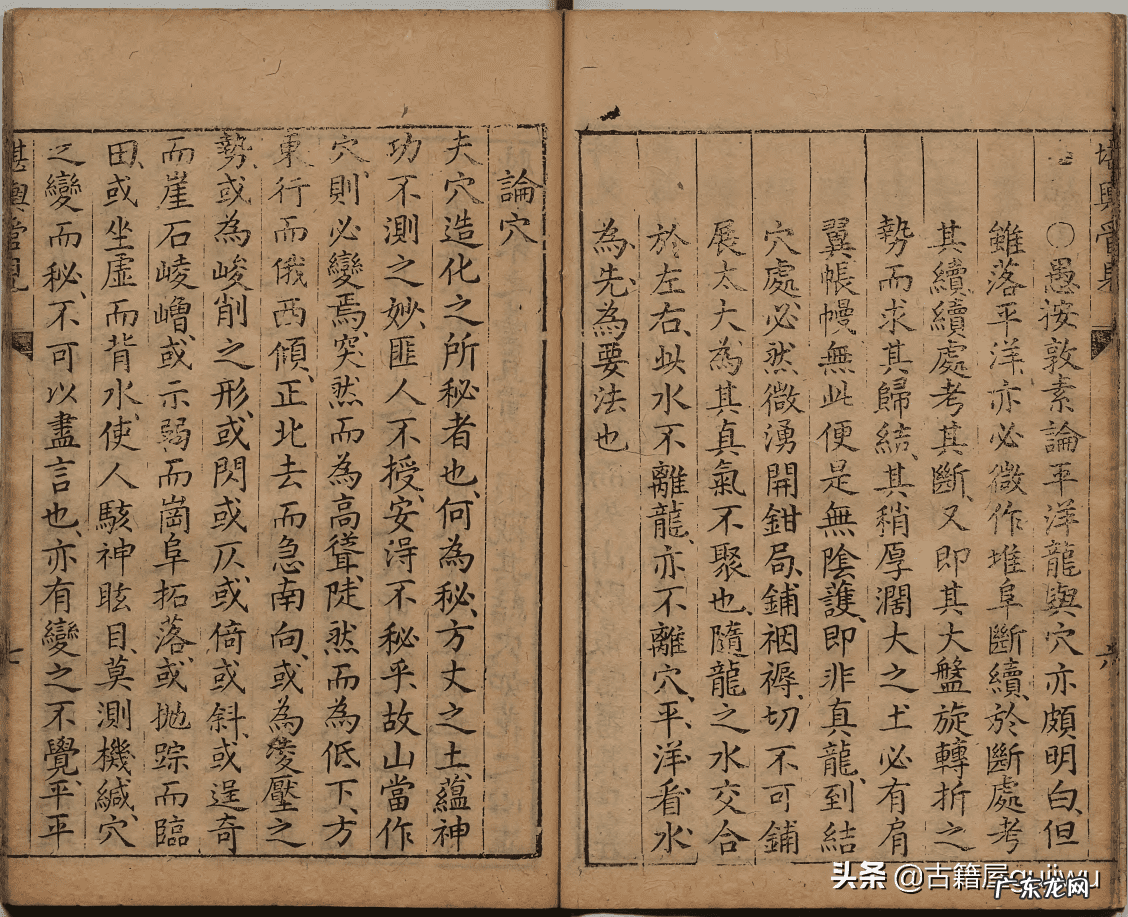 〇愚按敦素論平洋龍與穴亦頗明白但
雖落平洋亦必微作堆阜斷續於斷處考
其續續處考其斷又即其大盤旋轉折之
勢而求其歸結其稍厚濶大之土必有肩
翼帳幔無此便是無陰護即非真龍到結
穴處必然微湧開鉗局鋪裀褥切不可鋪
展太大為其真氣不聚也隨龍之水交合
於左右此水不離龍亦不離穴平洋看水
為先為要法也
六
論穴
夫穴造化之所秘者也何為秘方丈之土蘊神
功不測之妙匪人不授安淂不秘乎故山當作
穴則必變焉突然而為高聳陡然而為低下方
東行而俄西傾正北去而急南向或為庱壓之
勢或為峻削之形或閃或仄或倚或斜或逞奇
而崖石崚嶒或示弱而崗阜拓落或抛踪而臨
田或坐虛而背水使人駭神眩目莫測機緘穴
之變而秘不可以盡言也亦有變之不覺平平
堪輿管見
七
头条 @古籍屋gujiwu
广东龙网